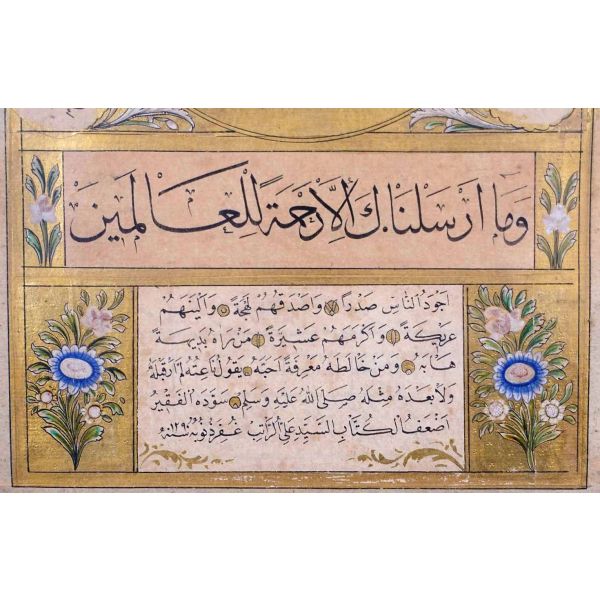 وَمَا اَرْسَلْنَاكَ اِلَّا رَحْمَةً لِلْعَالَمِينَ
اجود الناس صدرا واصدقهم لهجة والينهم
عريكة واكرمهم عشيرة من راه بديهة
هابه ومن خالطه معرفة احبه يقول ناعته لم ار قبله
ولا بعده مثله صلى الله عليه وسلم سوده الفقير
اضعف الكتاب السيد على الراتب غفر ذنوبه سنه ١٢٩٠